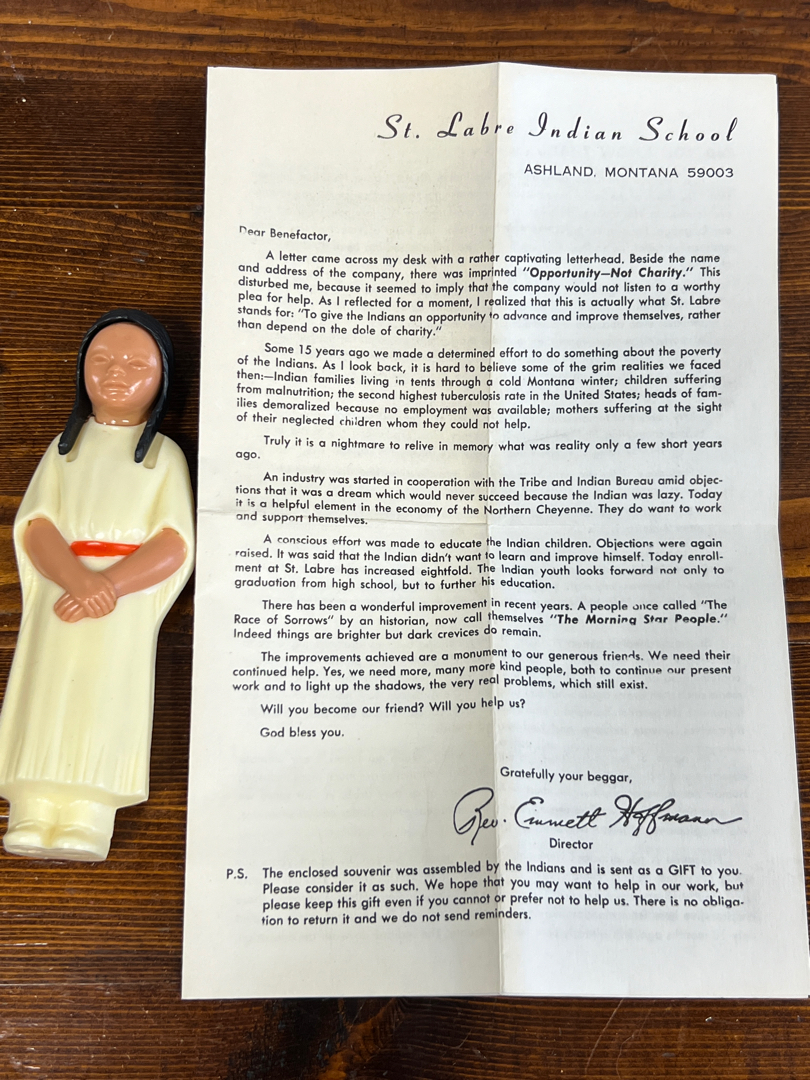 St. Labre Indian School
ASHLAND, MONTANA 59003
Dear Benefactor,
A letter came across my desk with a rather captivating letterhead. Beside the name
and address of the company, there was imprinted "Opportunity—Not Charity." This
disturbed me, because it seemed to imply that the company would not listen to a worthy
plea for help. As I reflected for a moment, I realized that this is actually what St. Labre
stands for: "To give the Indians an opportunity to advance and improve themselves, rather
than depend on the dole of charity."
Some 15 years ago we made a determined effort to do something about the poverty
of the Indians. As I look back, it is hard to believe some of the grim realities we faced
then:—Indian families living in tents through a cold Montana winter; children suffering
from malnutrition; the second highest tuberculosis rate in the United States; heads of fam-
ilies demoralized because no employment was available; mothers suffering at the sight
of their neglected children whom they could not help.
Truly it is a nightmare to relive in memory what was reality only a few short years
ago.
An industry was started in cooperation with the Tribe and Indian Bureau amid objec-
tions that it was a dream which would never succeed because the Indian was lazy. Today
it is a helpful element in the economy of the Northern Cheyenne. They do want to work
and support themselves.
A conscious effort was made to educate the Indian children. Objections were again
raised. It was said that the Indian didn't want to learn and improve himself. Today enroll-
ment at St. Labre has increased eightfold. The Indian youth looks forward not only to
graduation from high school, but to further his education.
There has been a wonderful improvement in recent years. A people once called "The
Race of Sorrows" by an historian, now call themselves "The Morning Star People."
Indeed things are brighter but dark crevices do remain.
The improvements achieved are a monument to our generous friends. We need their
continued help. Yes, we need more, many more kind people, both to continue our present
work and to light up the shadows, the very real problems, which still exist.
Will you become our friend? Will you help us?
God bless you.
Gratefully your beggar,
Rev. Emmett Hoffmann
Director
P.S. The enclosed souvenir was assembled by the Indians and is sent as a GIFT to you.
Please consider it as such. We hope that you may want to help in our work, but
please keep this gift even if you cannot or prefer not to help us. There is no obliga-
tion to return it and we do not send reminders.